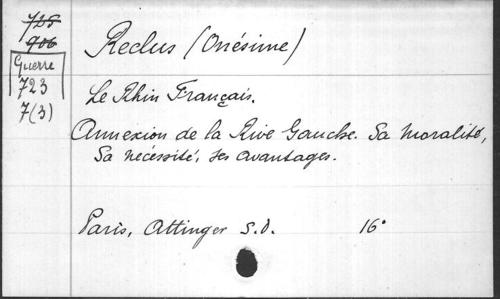 725
906
Guerre
723
7(3)
Reclus (Onésime)
Le Rhin Français.
Annexion de la Rive Gauche. Sa moralité,
Sa nécessité, ses avantages.
Paris, Attinger S.D. 16°